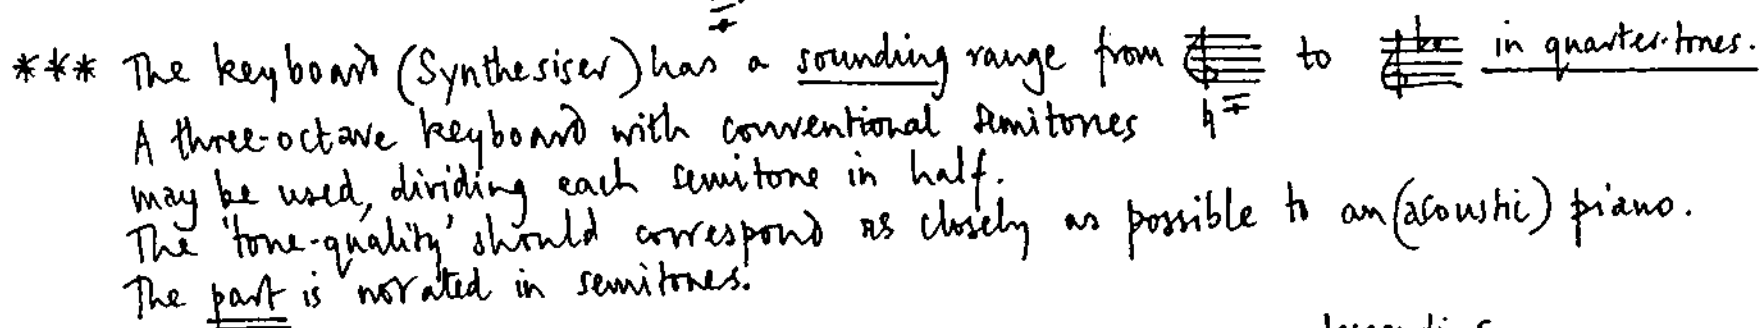 *** The keyboard (Synthesiser) has a sounding range from to in quarter-tones.
A three-octave keyboard with conventional semitones
may be used, dividing each semitone in half.
The 'tone-quality' should correspond as closely as possible to an (acoustic) piano.
The part is notated in semitones.